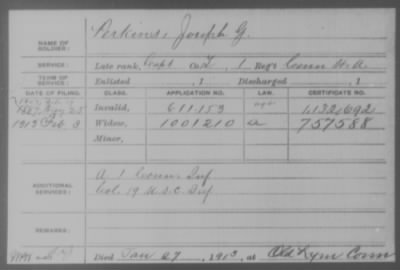 NAME OF SOLDIER: Perkins, Joseph G.
SERVICE: Late rank, Capt Co. I, 1 Reg't Conn H. A.
TERM OF SERVICE: Enlisted , 1 Discharged , 1
DATE OF FILING. CLASS. APPLICATION NO. LAW. CERTIFICATE NO.
Invalid, 611153 1,132,692
1913 Feb 3 Widow, 1001210 a 757588
Minor,
ADDITIONAL SERVICES: A 1 Conn Inf
Col. 19 U.S.C. Inf
REMARKS:
Died Jan 27, 1913, at Old Lyme Conn